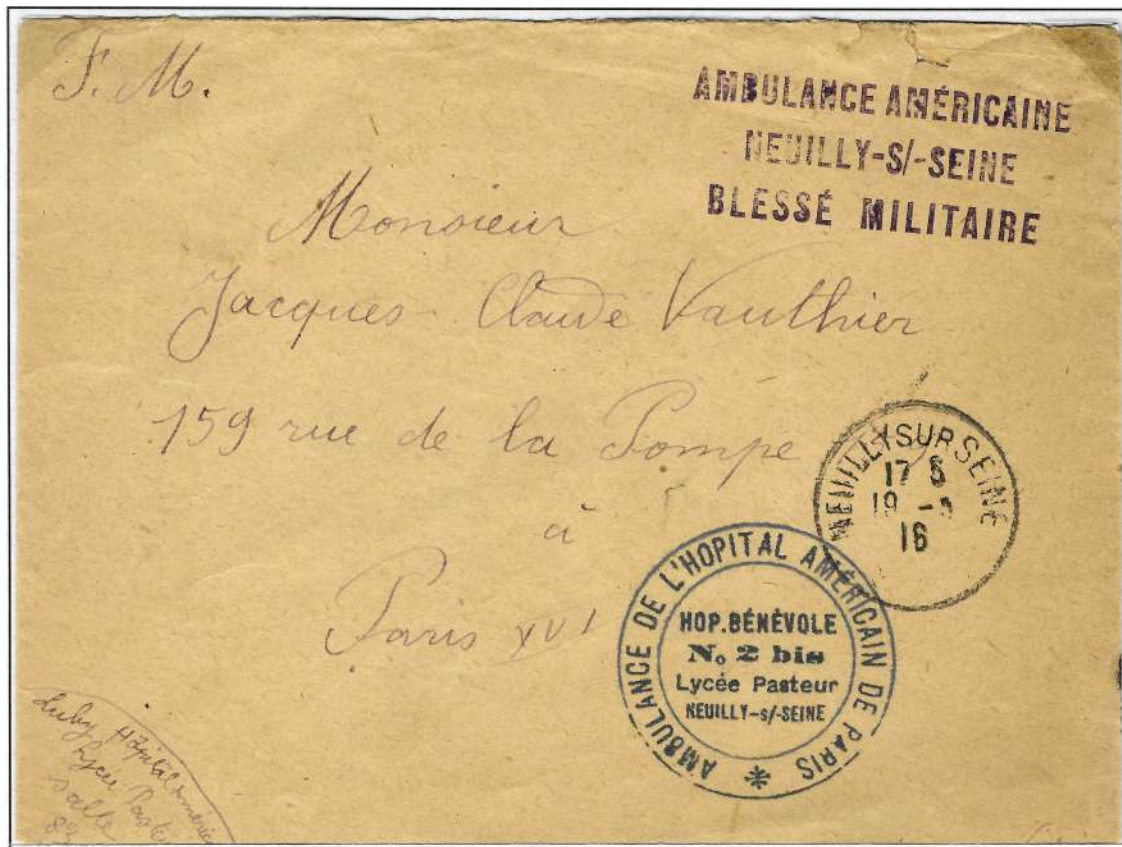 F. M.
AMBULANCE AMÉRICAINE
NEUILLY-S/-SEINE
BLESSÉ MILITAIRE
Monsieur
Jacques-Claude Vauthier
159 rue de la Pompe
à
Paris XVI
NEUILLY SUR SEINE
17
19 -
16
AMBULANCE DE L'HOPITAL AMÉRICAIN DE PARIS
HOP. BÉNÉVOLE
No 2 bis
Lycée Pasteur
NEUILLY-s/-SEINE
Hôpital
Salle